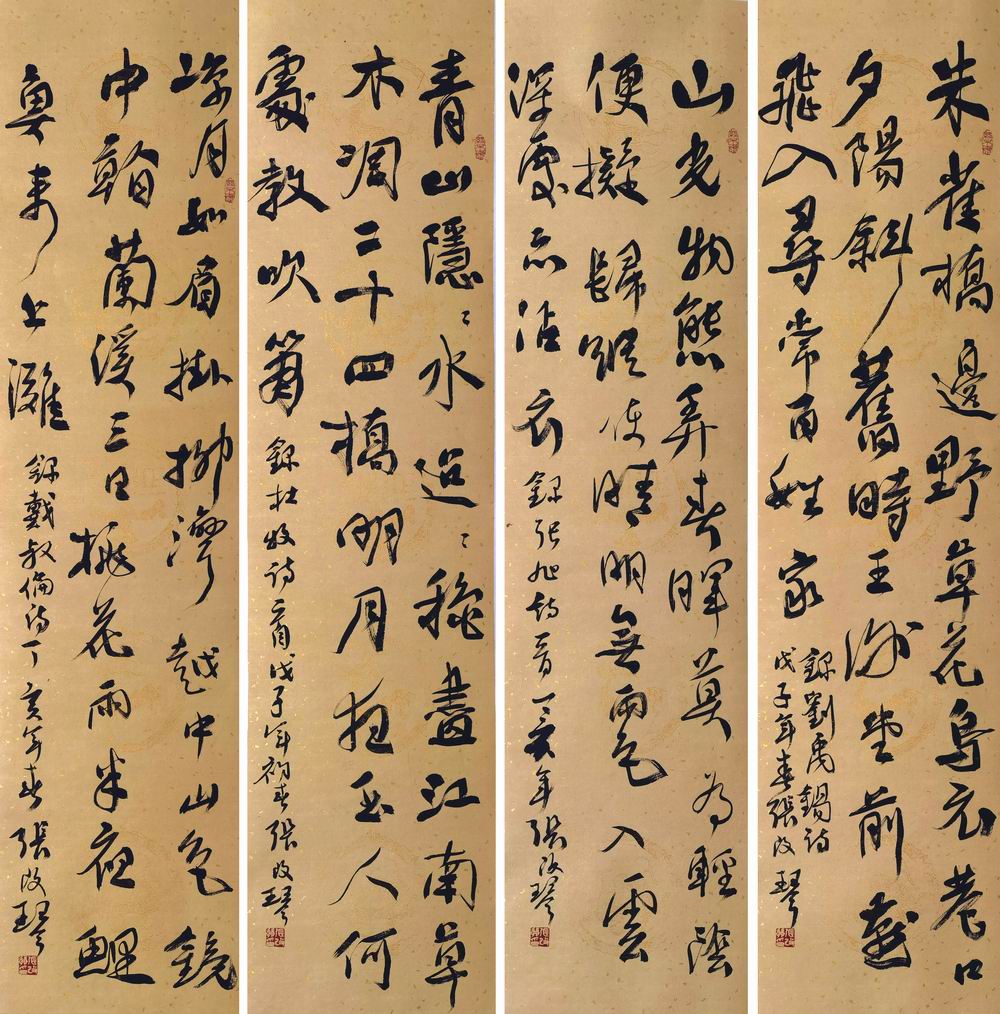 朱雀橋邊野草花烏衣巷口
夕陽斜舊時王謝堂前燕
飛入尋常百姓家
錄劉禹錫詩
戊子年春張改琴
山光物態弄春暉莫為輕陰
便擬歸縱使晴明無雨色入雲
深處亦沾衣
錄張旭詩一首丁亥年張改琴
青山隱隱水迢迢秋盡江南草
木凋二十四橋明月夜玉人何
處教吹簫
錄杜牧詩一首戊子年初春張改琴
涼月如眉掛柳灣越中山色鏡
中看蘭溪三日桃花雨半夜鯉
魚來上灘
錄戴叔倫詩丁亥年春張改琴